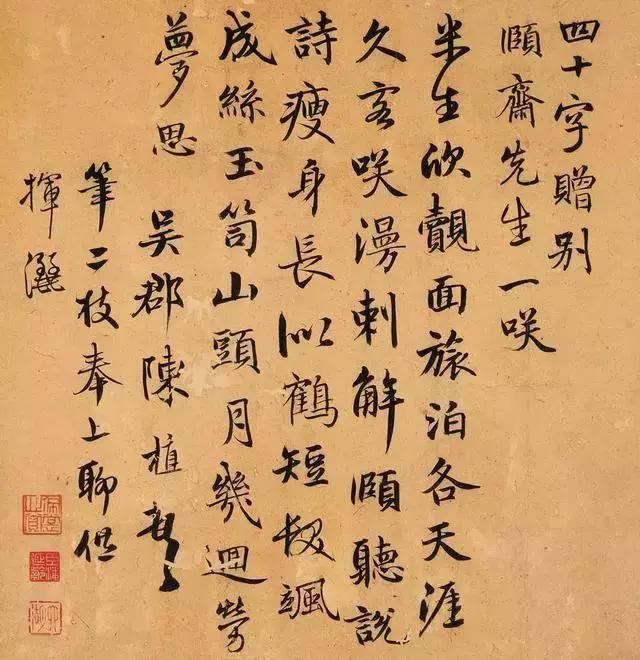 四十字贈别
頤齋先生一咲
生欣覿面旅泊各天涯
久客咲漫刺解頤聽説
詩瘦身長似鶴短髮颯
成絲玉笥山頭月幾迴勞
夢思 吳郡陳植
筆二枝奉上聊供
揮灑